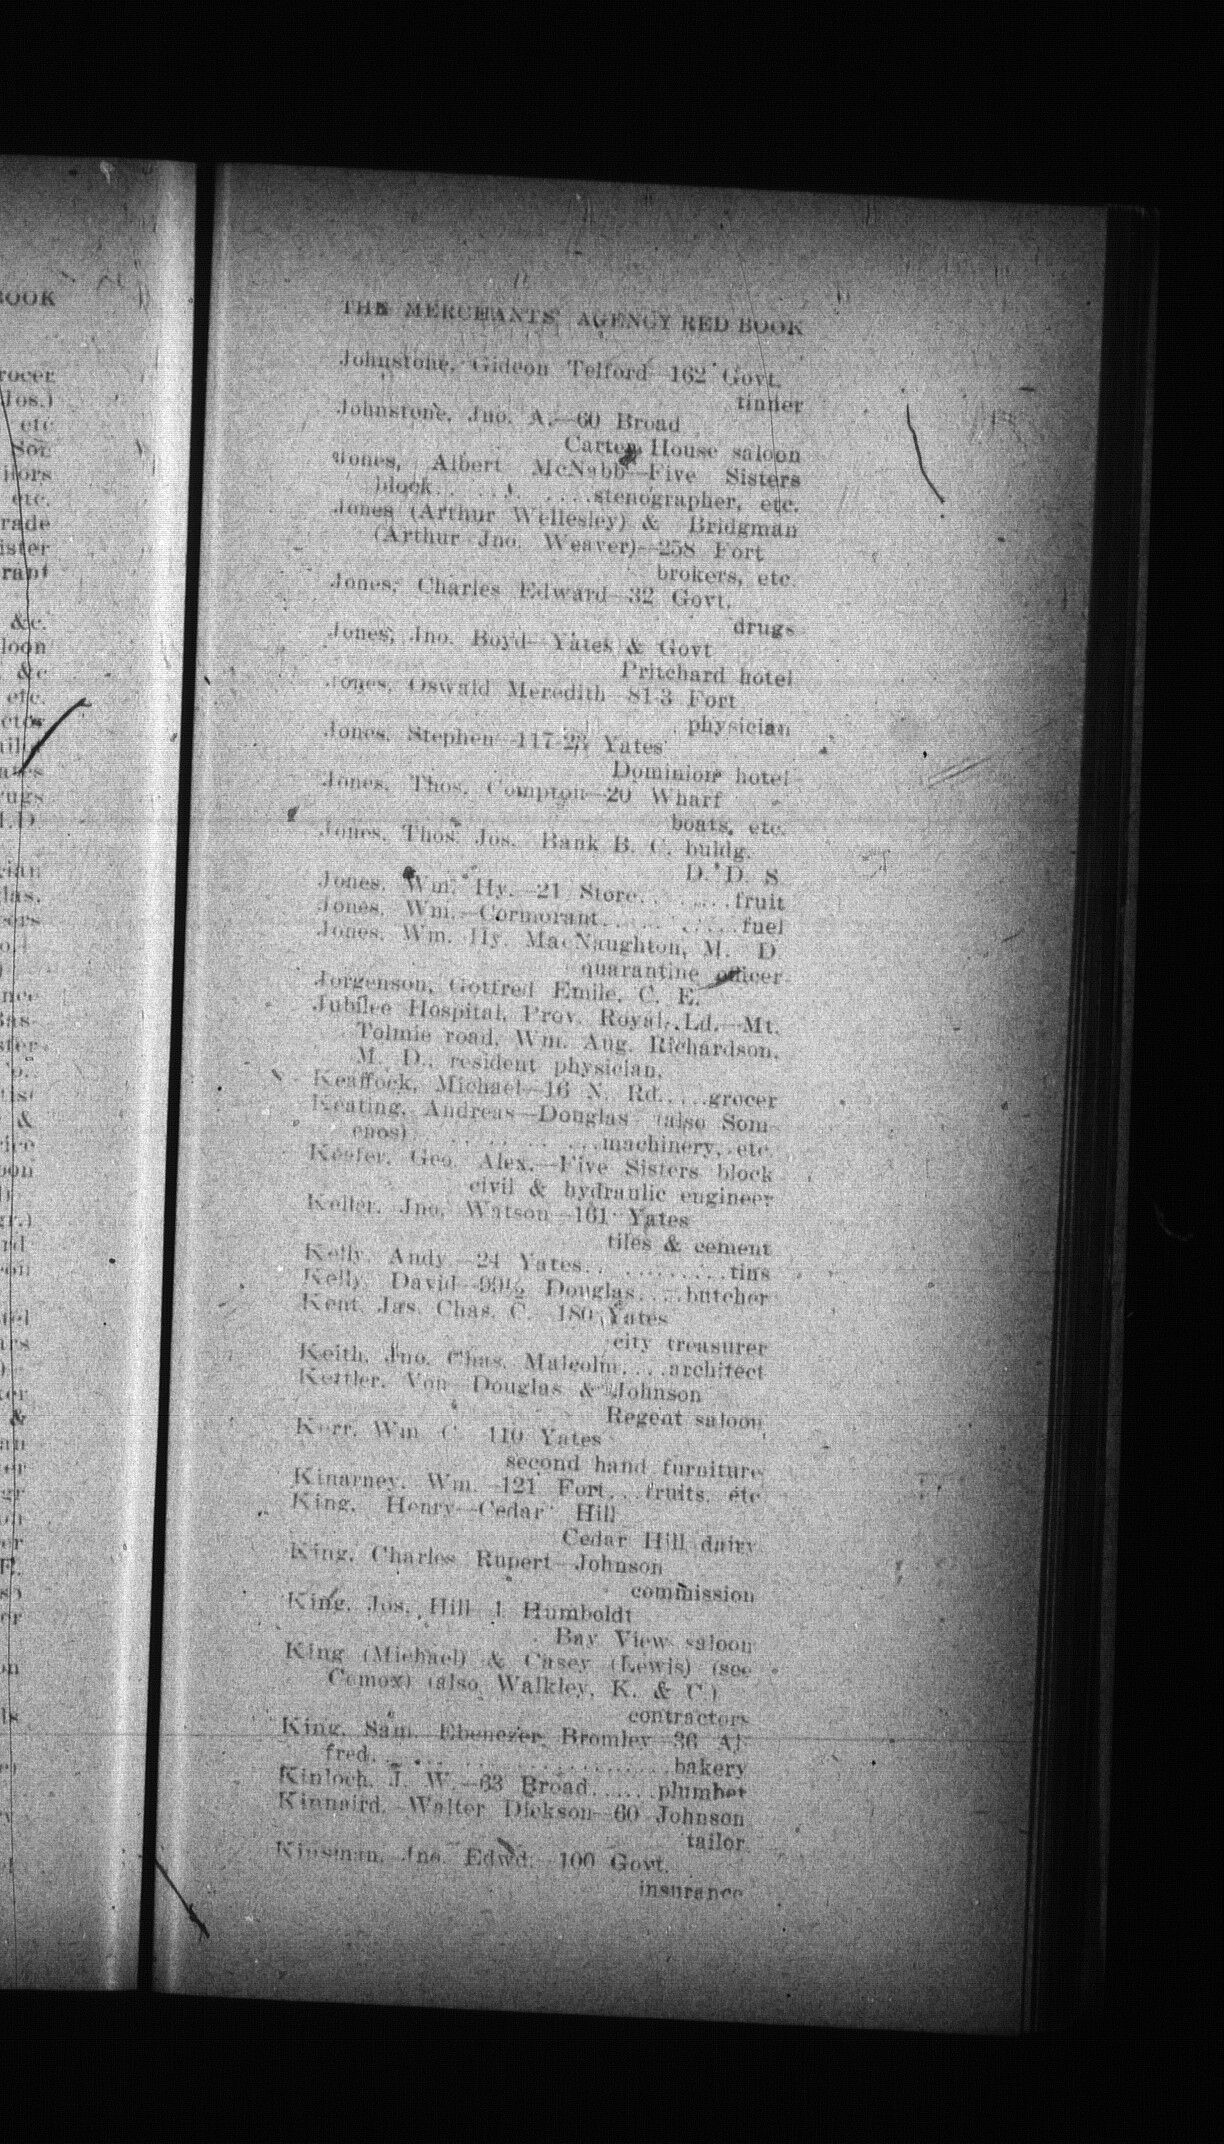 THE MERCHANTS' AGENCY RED BOOK
Johnstone, Gideon Telford—162 Govt.
tinner
Johnstone, Jno. A.—60 Broad
Carter House saloon
Jones, Albert McNabb—Five Sisters
block..............stenographer, etc.
Jones (Arthur Wellesley) & Bridgman
(Arthur Jno. Weaver)—258 Fort
brokers, etc.
Jones, Charles Edward—32 Govt.
drugs
Jones, Jno. Boyd—Yates & Govt
Pritchard hotel
Jones, Oswald Meredith—81-3 Fort
physician
Jones, Stephen—117-23 Yates
Dominion hotel
Jones, Thos. Compton—20 Wharf
boats, etc.
Jones, Thos. Jos. Bank B. C. buldg.
D. D. S.
Jones, Wm. Hy.—21 Store........fruit
Jones, Wm.—Cormorant...........fuel
Jones, Wm. Hy. MacNaughton, M. D.
quarantine officer
Jorgenson, Gotfred Emile, C. E.
Jubilee Hospital, Prov. Royal, Ld.—Mt.
Tolmie road, Wm. Aug. Richardson,
M. D., resident physician.
Keaffock, Michael—16 N. Rd.....grocer
Keating, Andreas—Douglas (also Som-
enos)..............machinery, etc.
Keefer, Geo. Alex.—Five Sisters block
civil & hydraulic engineer
Keller, Jno. Watson—161 Yates
tiles & cement
Kelly, Andy—24 Yates............tins
Kelly, David—99½ Douglas.....butcher
Kent, Jas. Chas. C. 180 Yates
city treasurer
Keith, Jno. Chas. Malcolm....architect
Kettler, Von—Douglas & Johnson
Regent saloon
Kerr, Wm C 110 Yates
second hand furniture
Kinarney, Wm.—121 Fort...fruits, etc
King, Henry—Cedar Hill
Cedar Hill dairy
King, Charles Rupert—Johnson
commission
King, Jos. Hill 1 Humboldt
Bay View saloon
King (Michael) & Casey (Lewis) (see
Comox) (also Walkley, K. & C.)
contractors
King, Sam. Ebenezer Bromley—36 Al-
fred........................bakery
Kinloch, J. W.—63 Broad......plumber
Kinnaird, Walter Dickson—60 Johnson
tailor
Kinsman, Jno. Edwd.—100 Govt.
insurance